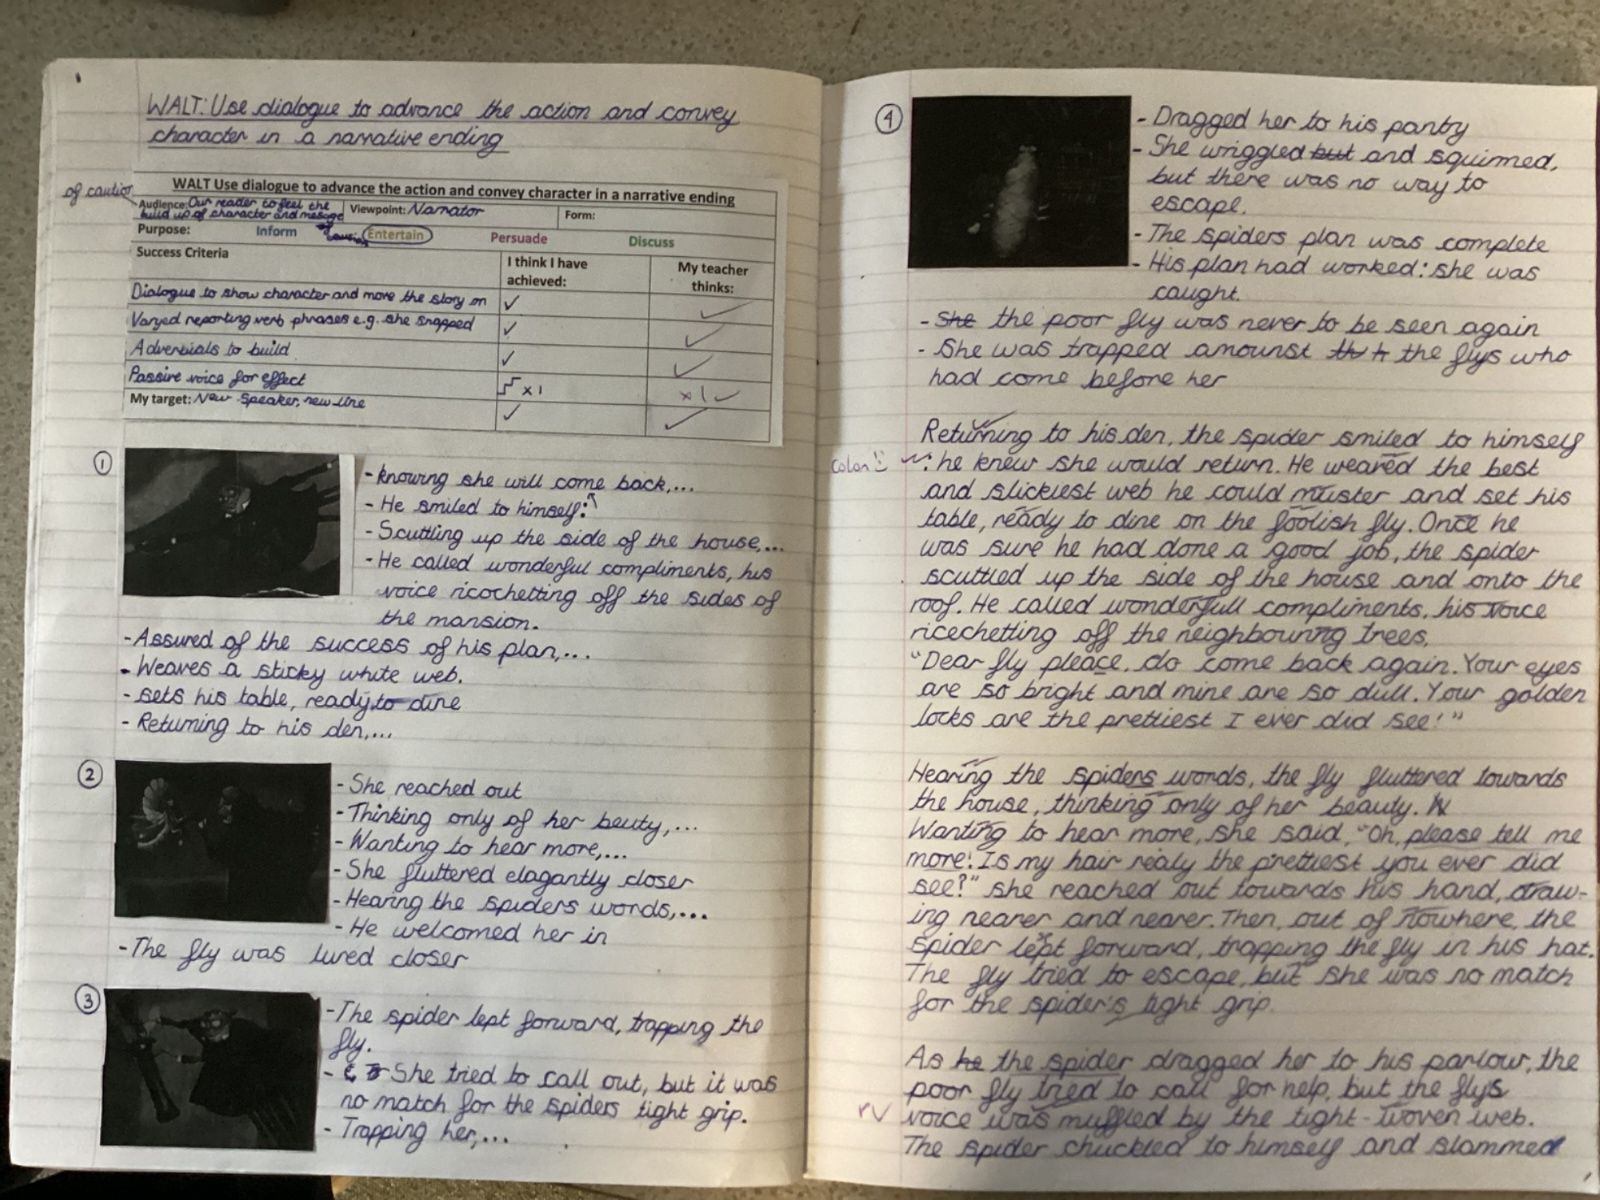 WALT: Use dialogue to advance the action and convey
character in a narrative ending
of caution
WALT Use dialogue to advance the action and convey character in a narrative ending
Audience: Our reader to feel the
build up of character and message
Viewpoint: Narrator
Form:
Purpose: Inform Entertain Persuade Discuss
Success Criteria
I think I have
achieved:
My teacher
thinks:
Dialogue to show character and move the story on
Varyed reporting verb phrases e.g. she snapped
Adverbials to build
Passive voice for effect
x1
x1
My target: New speaker, new line
1
- knowing she will come back,...
- He smiled to himself:
- Scuttling up the side of the house,...
- He called wonderful compliments, his
voice ricochetting off the sides of
the mansion.
- Assured of the success of his plan,...
- Weaves a sticky white web.
- sets his table, ready to dine
- Returning to his den,...
2
- She reached out
- Thinking only of her beuty,...
- Wanting to hear more,...
- She fluttered elagantly closer
- Hearing the spiders words,...
- He welcomed her in
- The fly was lured closer
3
- The spider lept forward, trapping the
fly.
- She tried to call out, but it was
no match for the spiders tight grip.
- Trapping her,...
4
- Dragged her to his pantry
- She wriggled but and squirmed,
but there was no way to
escape.
- The spiders plan was complete
- His plan had worked: she was
caught.
- She the poor fly was never to be seen again
- She was trapped amounst the flys who
had come before her
Returning to his den, the spider smiled to himself
colon
: he knew she would return. He weaved the best
and slickiest web he could muster and set his
table, ready to dine on the foolish fly. Once he
was sure he had done a good job, the spider
scuttled up the side of the house and onto the
roof. He called wonderfull compliments, his voice
ricechetting off the neighbouring trees.
"Dear fly pleace, do come back again. Your eyes
are so bright and mine are so dull. Your golden
locks are the prettiest I ever did see!"
Hearing the spiders words, the fly fluttered towards
the house, thinking only of her beauty. W
Wanting to hear more, she said, "Oh, please tell me
more! Is my hair realy the prettiest you ever did
see?" she reached out towards his hand, draw-
ing nearer and nearer. Then, out of nowhere, the
spider lept forward, trapping the fly in his hat.
The fly tried to escape, but she was no match
for the spider's tight grip.
As he the spider dragged her to his parlour, the
poor fly tried to call for help, but the flys
voice was muffled by the tight-woven web.
The spider chuckled to himself and slammed